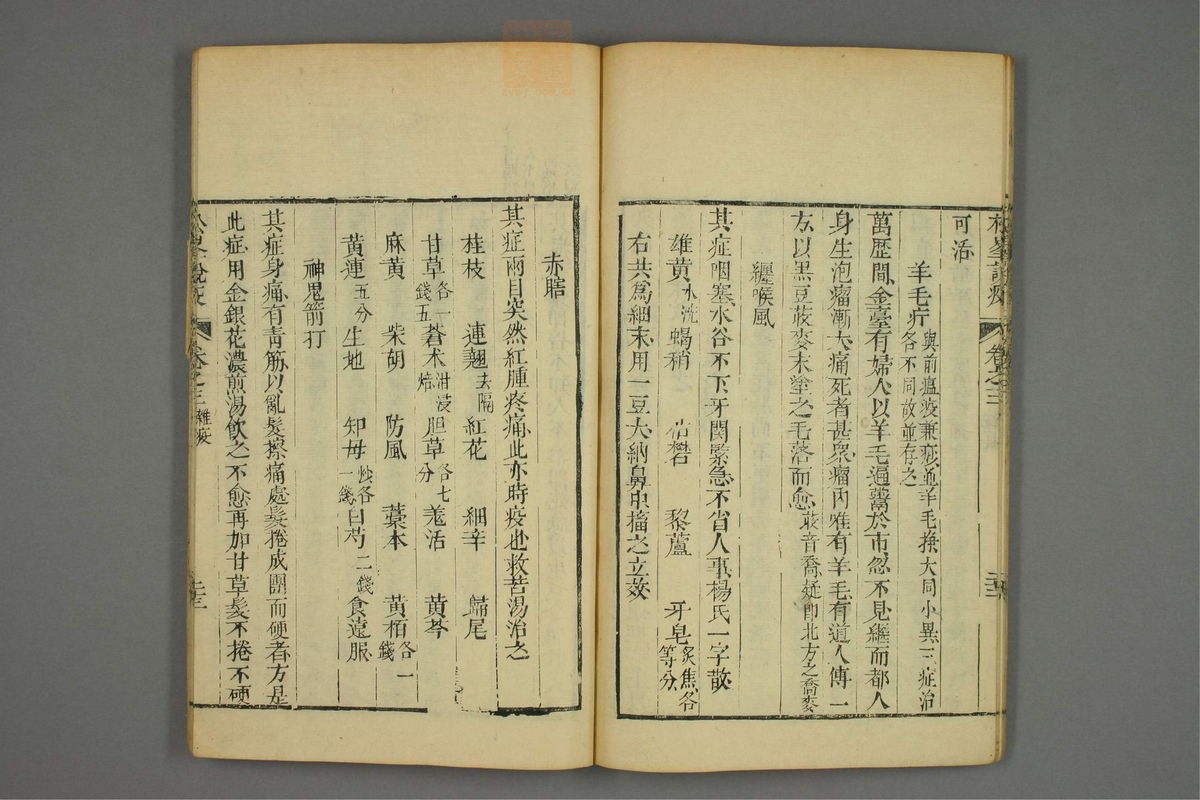 松峯說疫
卷之三
可活
羊毛疔
與前瘟疫兼痧並羊毛挑大同小異三症治
各不同故並存之
萬歷間金臺有婦人以羊毛遍鬻於市忽不見繼而都人
身生泡瘤漸大痛死者甚衆瘤內唯有羊毛有道人傳一
方以黑豆荍麥末塗之毛落而愈荍音喬疑卽北方之喬麥
纏喉風
其症咽塞水谷不下牙關緊急不省人事楊氏一字散
雄黃水洗 蝎稍 枯礬 黎蘆 牙皂炙焦各等分
右共爲細末用一豆大納鼻中搐之立效
赤瞎
其症兩目突然紅腫疼痛此亦時疫也救苦湯治之
桂枝 連翹去隔 紅花 細辛 歸尾
甘草各一錢五 蒼术泔浸焙 胆草各七分 羗活 黃芩
麻黃 柴胡 防風 藁本 黃栢各一錢
黃連五分 生地 知母炒各一錢 白芍二錢 食遠服
神鬼箭打
其症身痛有靑筋以亂髮擦痛處髮捲成團而硬者方是
此症用金銀花濃煎湯飮之不愈再加甘草髮不捲不硬
松峯說疫
卷之三 雜疫
二十三